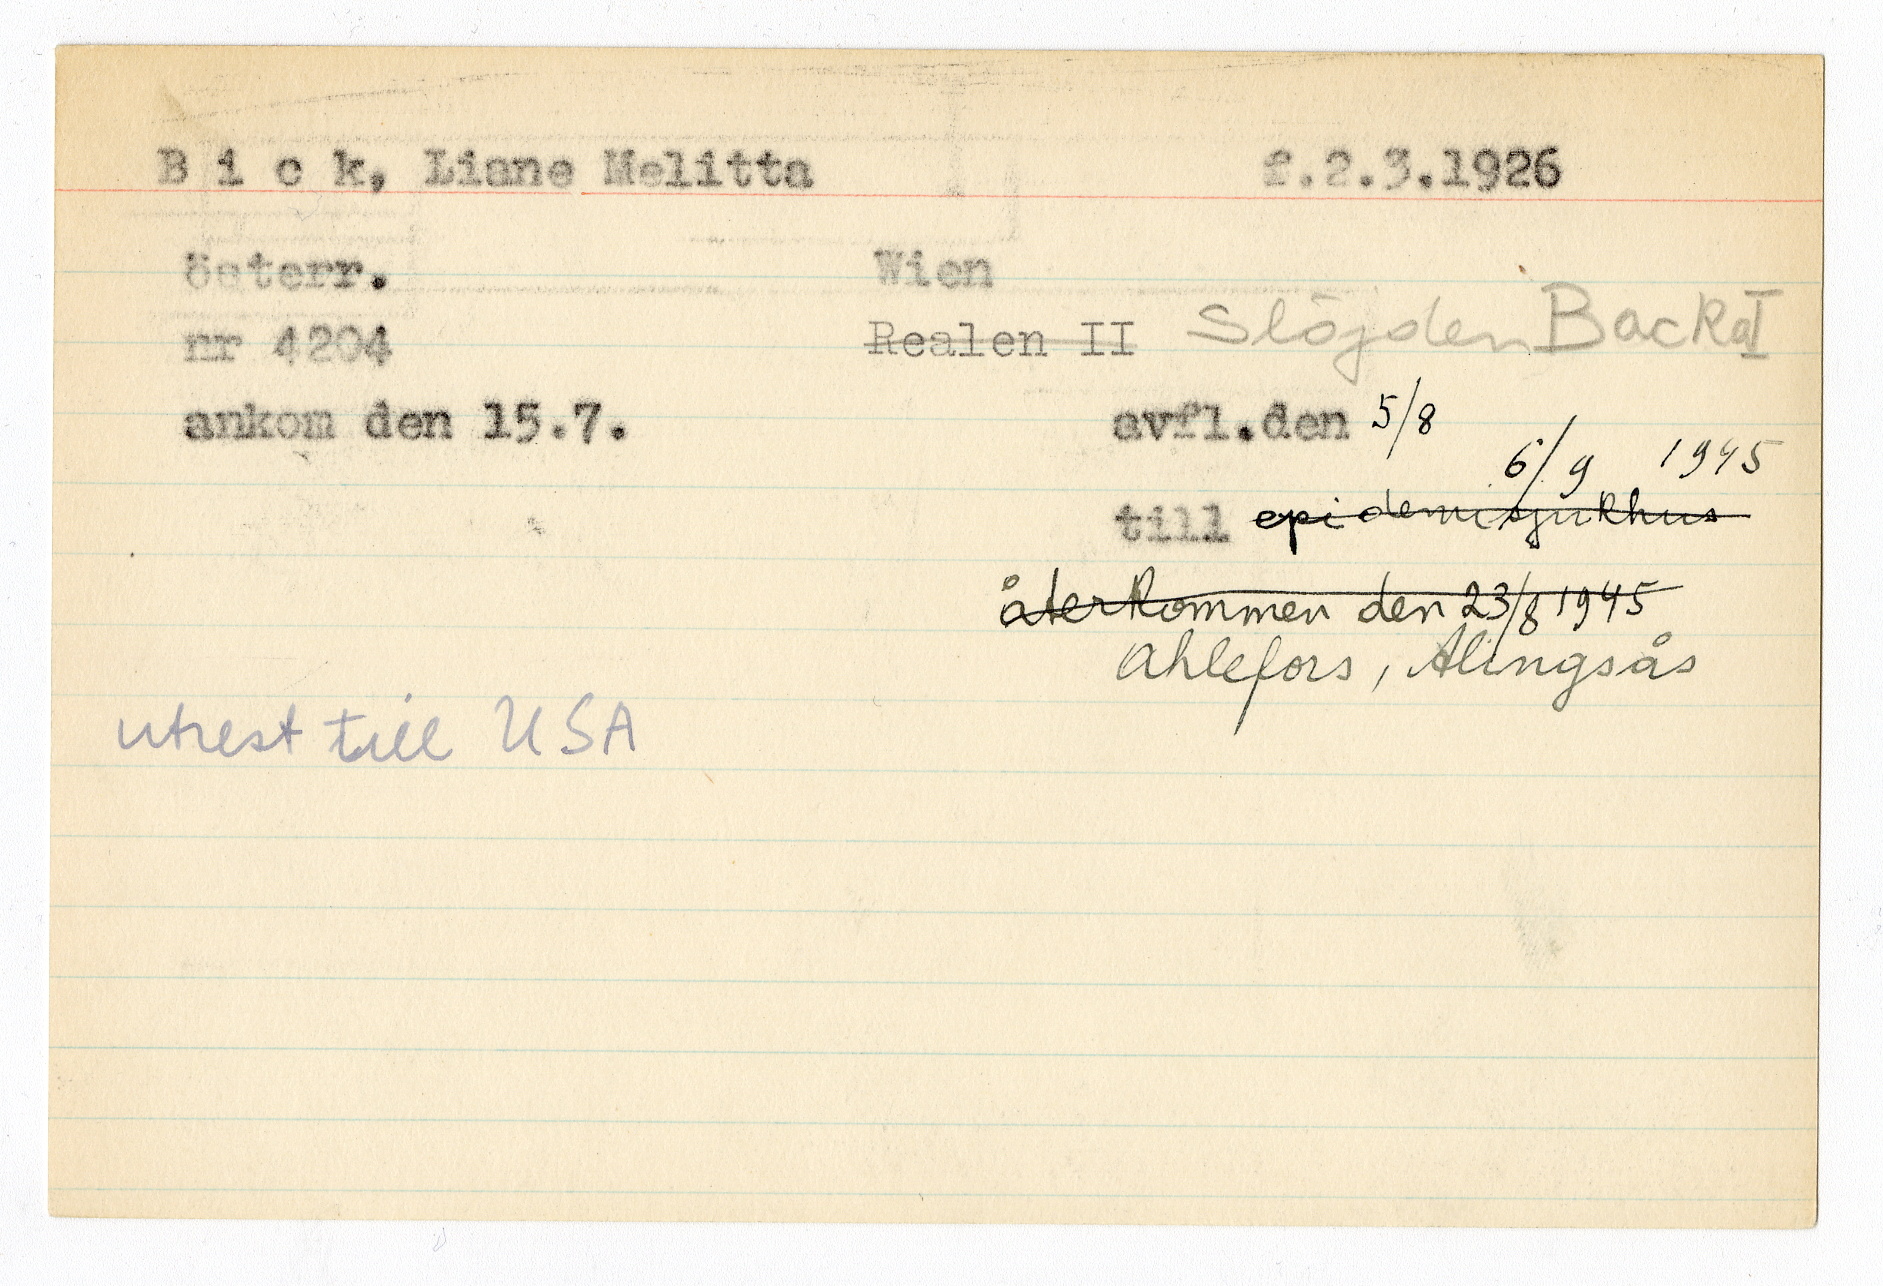 B i c k, Liane Melitta f.2.3.1926
österr. Wien
nr 4204 Realen II Slöjden Backa I
ankom den 15.7. avfl.den 5/8
6/9 1945
till epidemisjukhus
återkommen den 23/8 1945
Ahlefors, Alingsås
utrest till USA